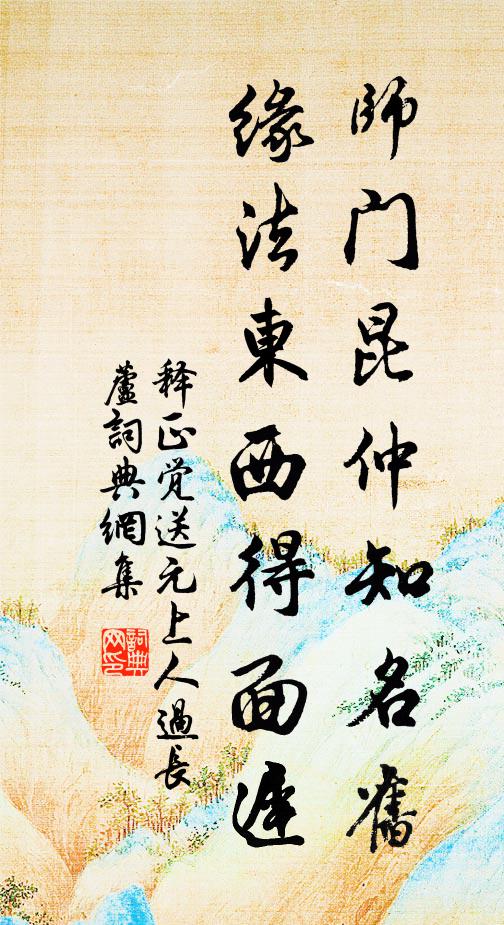 師门昆仲知名舊
緣法東西得面遲
释正觉送元上人過長
蘆詞典網集
詞典
网印